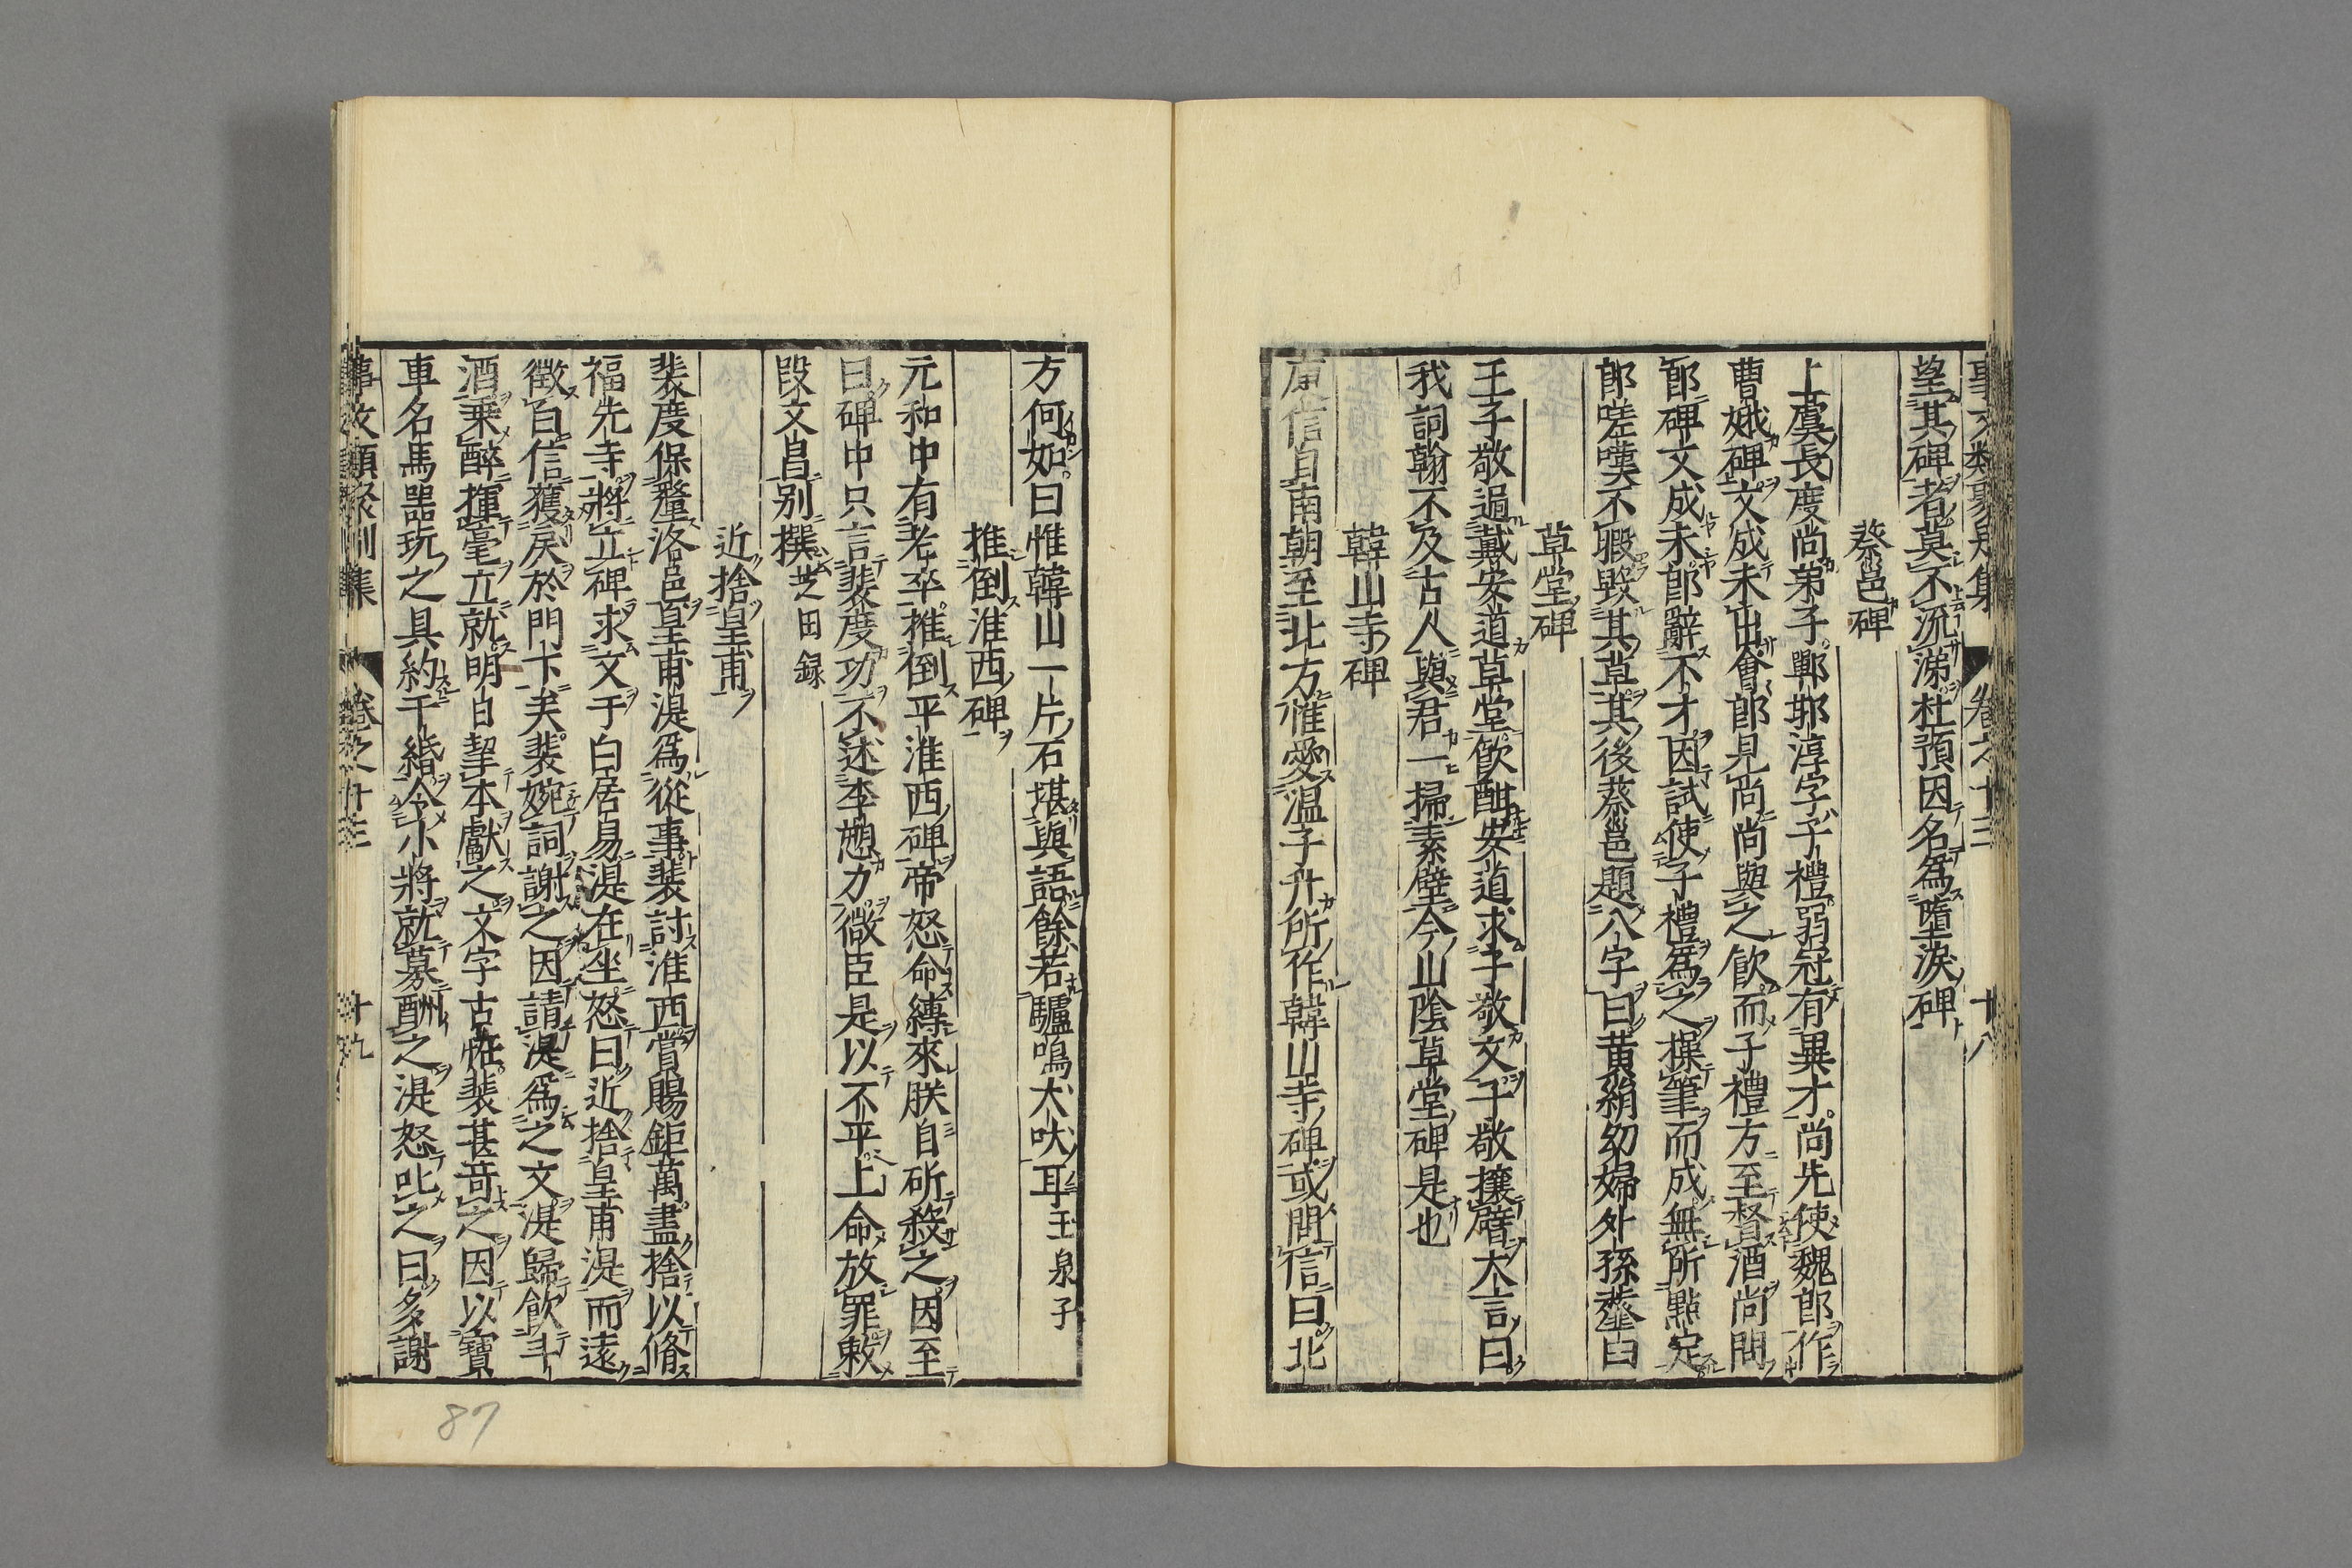 事文類聚別集 卷之十三 十八
望其碑者莫不流涕杜預因名爲墮淚碑
蔡邕碑
上虞長度尚弟子邯鄲淳字子禮弱冠有異才尚先使魏郎作
曹娥碑文成未出會郎見尚尚與之飲而子禮方至督酒尚問
郎碑文成未郎辭不才因試使子禮爲之操筆而成無所點定
郎嗟嘆不暇毀其草其後蔡邕題八字曰黄絹幼婦外孫虀臼
草堂碑
王子敬過戴安道草堂飲酣安道求子敬文子敬攘臂大言曰
我詞翰不及古人與君一掃素壁今山陰草堂碑是也
韓山寺碑
庾信自南朝至北方惟愛温子升所作韓山寺碑或問信曰北
方何如曰惟韓山一片石堪與語餘若驢鳴犬吠耳玉泉子
推倒淮西碑
元和中有老卒推倒平淮西碑帝怒命縛來朕自斫殺之因至
曰碑中只言裴度功不述李愬力微臣是以不平上命放罪敕
段文昌别撰芝田録
近捨皇甫
裴度保釐洛邑皇甫湜爲從事裴討淮西賞賜鉅萬盡捨以脩
福先寺將立碑求文于白居易湜在坐怒曰近捨皇甫湜而遠
徵白信獲戾於門下矣裴婉詞謝之因請湜爲之文湜歸飲斗
酒乘醉揮毫立就明日挈本獻之文字古恠裴甚竒之因以寶
車名馬噐玩之具約千緡令小將就募酬之湜怒叱之曰多謝
事文類聚別集 卷之十三 十九
87